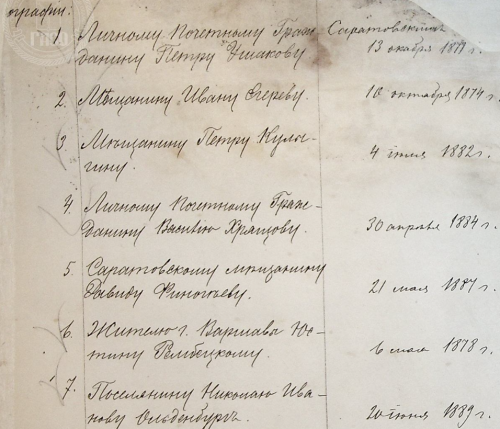 графии:
1. Личному Почетному Граж- Саратовскимъ
данину Петру Ушакову 13 1879 г.
2. Мѣщанину Ивану Егереву. 10 октября 1874 г.
3. Мѣщанину Петру Куля-
гину. 4 1882 г.
4. Личному Почетному Граж-
данину Василію Храмцову. 30 апрѣля 1884 г.
5. Саратовскому мѣщанину
Давиду Финогѣеву. 21 мая 1887 г.
6. Жителю г. Варшавы Юс-
тину Рембецкому. 6 мая 1878 г.
7. Поселянину Николаю Ива-
нову Ольденбургъ. 20 іюня 1889 г.